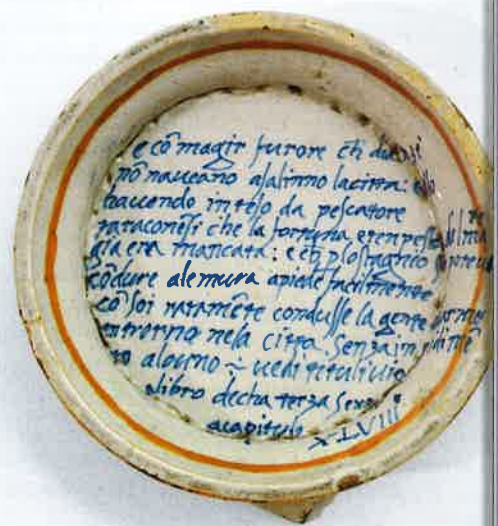 e cõ magir furore ch
nõ naueano asalirno lacitta:
hauendo inteso da pescatore
taraconesi che la fortuna
gia era mancata: e ch p lo stagnio
cõdure alemura apiede facilmente
cõ soi raramẽte condusse la gente
introrno nela citta. Senza inpedimẽ
to alcuno ÷ uedi titu liuio
Libro decha terza
acapitulo XLVIII